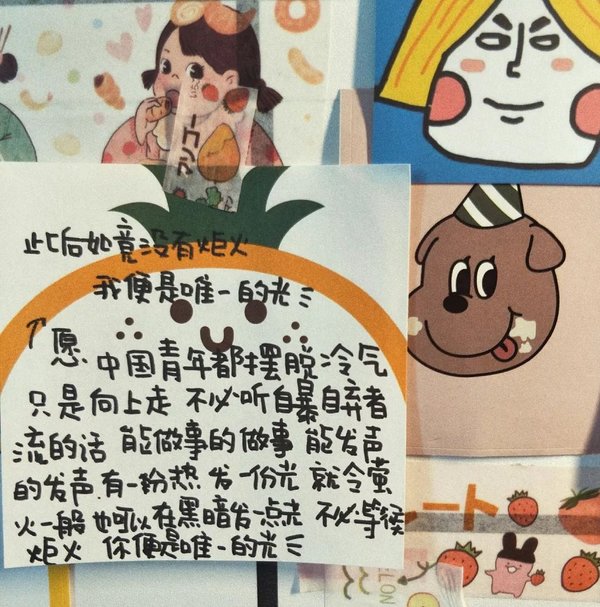 マリコー
此后如竟没有炬火
我便是唯一的光
愿中国青年都摆脱冷气
只是向上走 不必听自暴自弃者
流的话 能做事的做事 能发声
的发声.有一份热 发一份光 就令萤
火一般 也可以在黑暗发一点光 不必等候
炬火 你便是唯一的光
ート
ELON